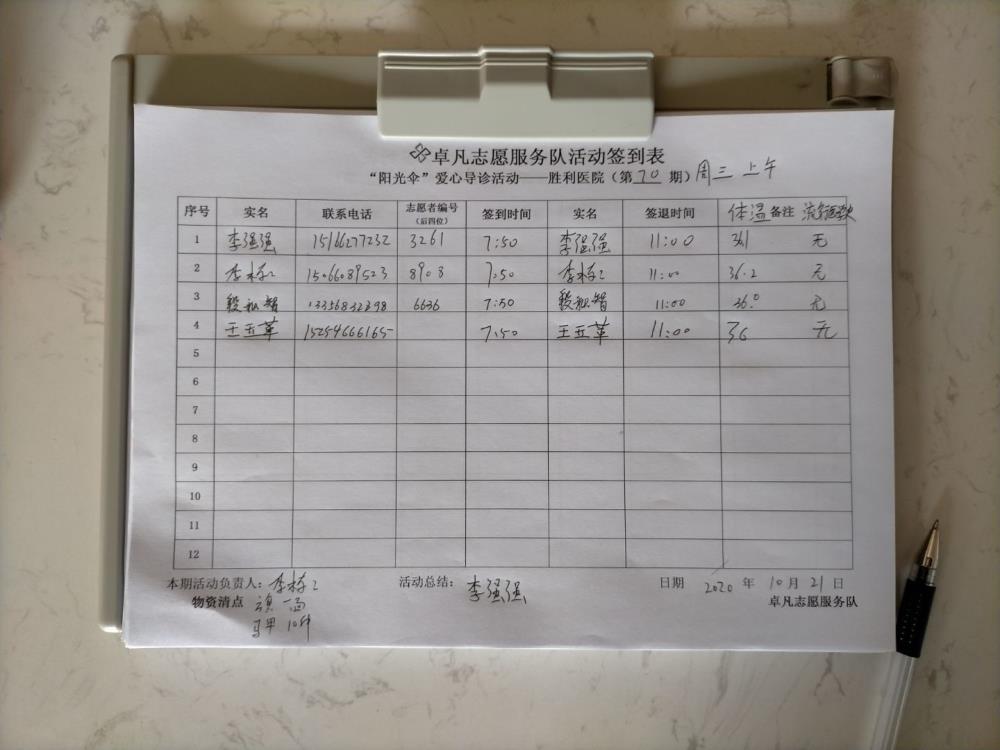 卓凡志愿服务队活动签到表
“阳光伞”爱心导诊活动——胜利医院（第70期）周三 上午
序号 实名 联系电话 志愿者编号（后四位） 签到时间 实名 签退时间 体温 备注
1 李强强 15166277232 3261 7:50 李强强 11:00 36.1 无
2 李栋之 15066089523 8903 7:50 李栋之 11:00 36.2 无
3 6636 7:50 11:00 36.0 无
4 王亚革 15254666165 7:50 王亚革 11:00 36 无
5
6
7
8
9
10
11
12
本期活动负责人：李栋之 活动总结：李强强 日期 2020 年 10 月 21 日
物资清点 旗一面 卓凡志愿服务队
马甲 10件